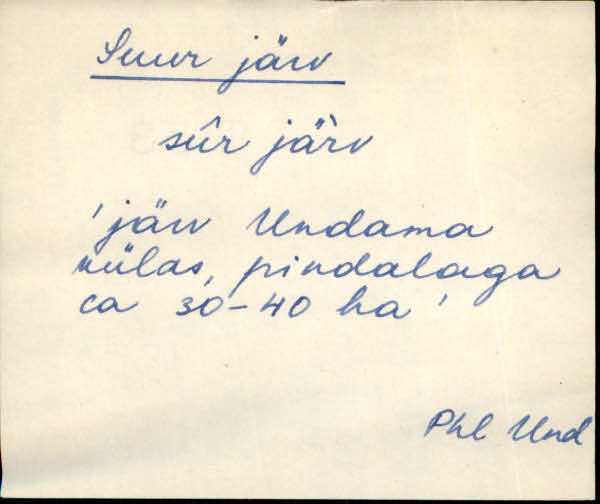 Suur järv
sûr jär̀v
'järv Undama
külas, pindalaga
ca 30-40 ha'
Phl Und